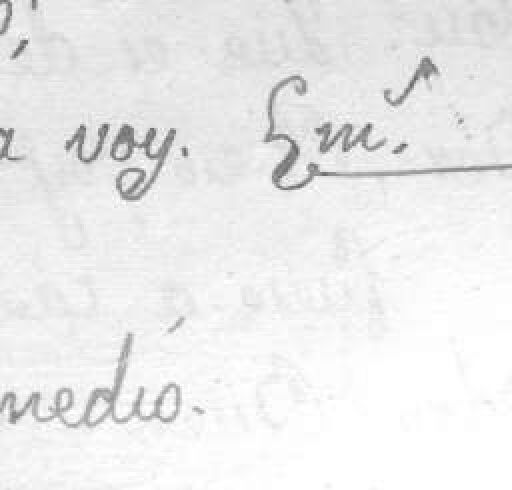 a voy. Em.
medio.